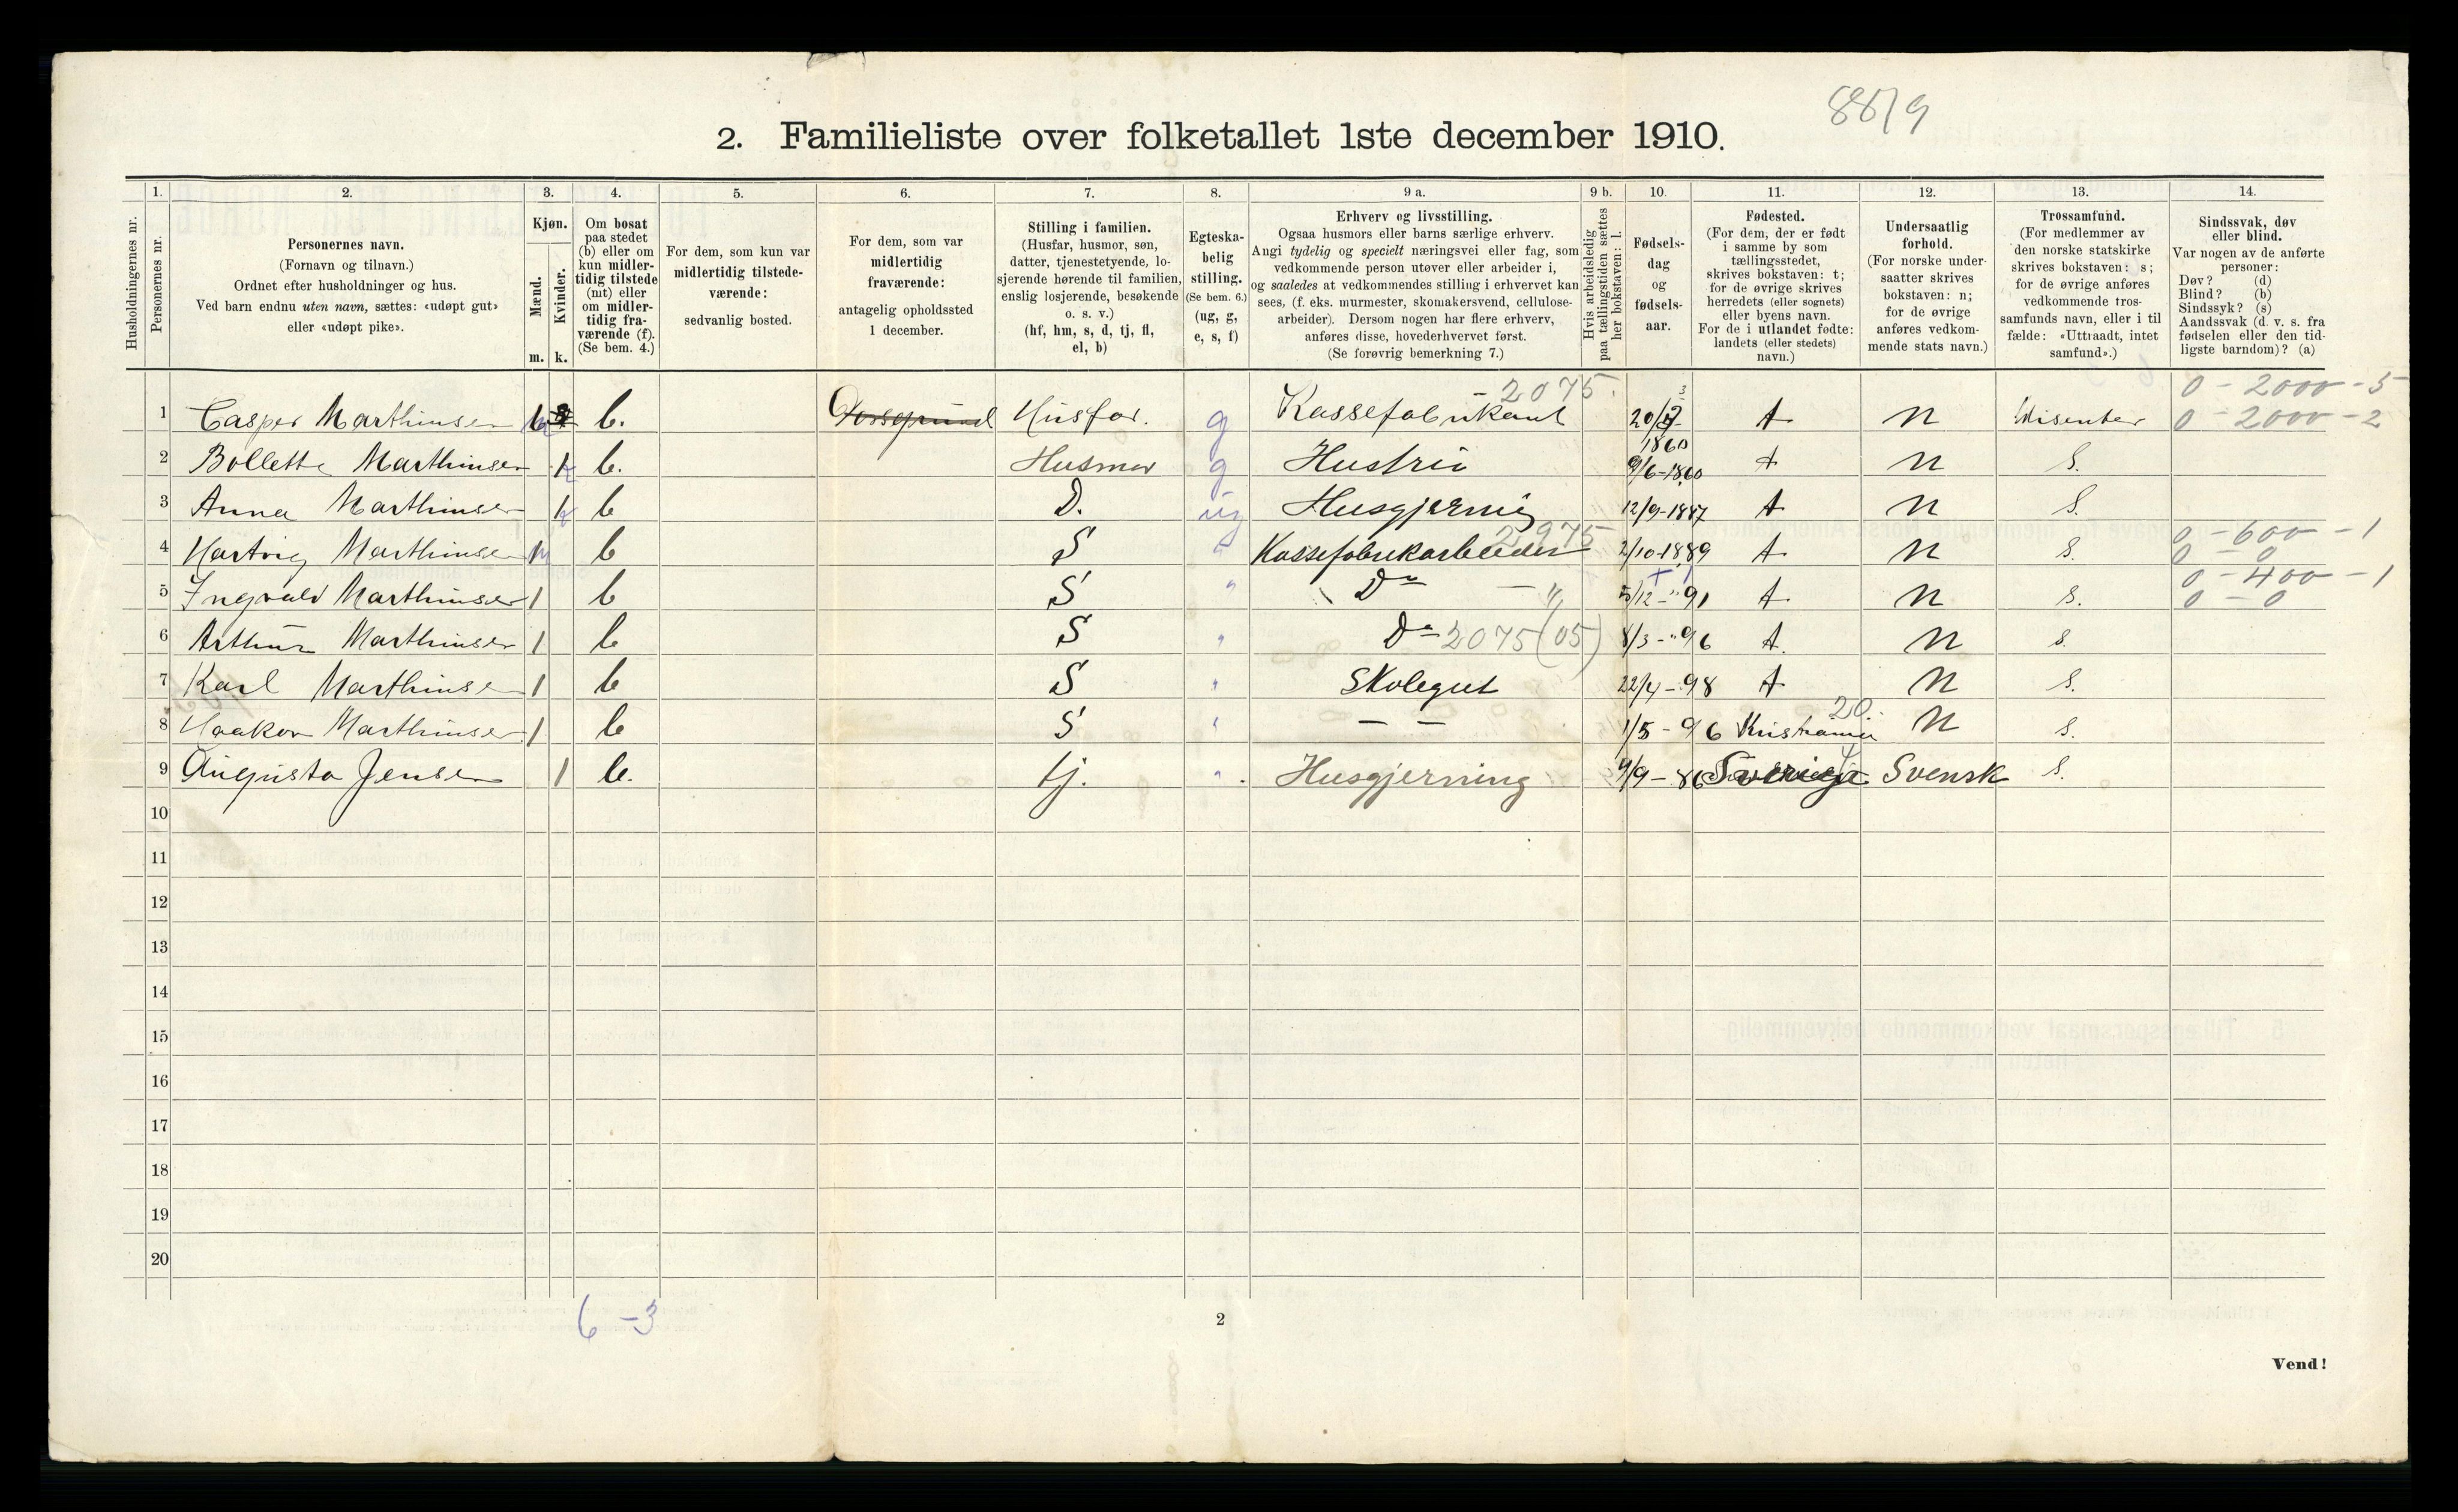 8819
2. Familieliste over folketallet 1ste december 1910.
Husholdningernes nr.
1. Personernes nr.
2. Personernes navn.
(Fornavn og tilnavn.)
Ordnet efter husholdninger og hus.
Ved barn endnu uten navn, sættes: «udøpt gut»
eller «udøpt pike».
3. Kjøn.
Mænd. m.
Kvinder. k.
4. Om bosat
paa stedet
(b) eller om
kun midler-
tidig tilstede
(mt) eller
om midler-
tidig fra-
værende (f).
(Se bem. 4.)
5. For dem, som kun var
midlertidig tilstede-
værende:
sedvanlig bosted.
6. For dem, som var
midlertidig
fraværende:
antagelig opholdssted
1 december.
7. Stilling i familien.
(Husfar, husmor, søn,
datter, tjenestetyende, lo-
sjerende hørende til familien,
enslig losjerende, besøkende
o. s. v.)
(hf, hm, s, d, tj, fl,
el, b)
8. Egteska-
belig
stilling.
(Se bem. 6.)
(ug, g,
e, s, f)
9 a. Erhverv og livsstilling.
Ogsaa husmors eller barns særlige erhverv.
Angi tydelig og specielt næringsvei eller fag, som
vedkommende person utøver eller arbeider i,
og saaledes at vedkommendes stilling i erhvervet kan
sees, (f. eks. murmester, skomakersvend, cellulose-
arbeider). Dersom nogen har flere erhverv,
anføres disse, hovederhvervet først.
(Se forøvrig bemerkning 7.)
9 b. Hvis arbeidsledig
paa tællingstiden sættes
her bokstaven: l.
10. Fødsels-
dag
og
fødsels-
aar.
11. Fødested.
(For dem, der er født
i samme by som
tællingsstedet,
skrives bokstaven: t;
for de øvrige skrives
herredets (eller sognets)
eller byens navn.
For de i utlandet fødte:
landets (eller stedets)
navn.)
12. Undersaatlig
forhold.
(For norske under-
saatter skrives
bokstaven: n;
for de øvrige
anføres vedkom-
mende stats navn.)
13. Trossamfund.
(For medlemmer av
den norske statskirke
skrives bokstaven: s;
for de øvrige anføres
vedkommende tros-
samfunds navn, eller i til
fælde: «Uttraadt, intet
samfund».)
14. Sindssvak, døv
eller blind.
Var nogen av de anførte
personer:
Døv? (d)
Blind? (b)
Sindssyk? (s)
Aandssvak (d. v. s. fra
fødselen eller den tid-
ligste barndom)? (a)
2075. 0 - 2000 - 5
1 Casper Marthinsen b. Husfar. g Kassefabrikant 20/3 1860 t n Disenter 0 - 2000 - 2
2 Bollette Marthinsen 1 b. Husmor g Hustru 9/6-1860 t n S.
3 Anna Marthinsen 1 b D. ug Husgjerning 12/9-1887 t n S.
2975 0 - 600 - 1
4 Hartvig Marthinsen 1 b S " Kassefabrikarbeider 2/10-1889 t n S. 0 - 0
0 - 400 - 1
5 Ingvald Marthinsen 1 b S " Do - " 5/12 - " 91 t n S. 0 - 0
6 Arthur Marthinsen 1 b S " Do 2075 (05) 8/3 - " 96 t. n S.
7 Karl Marthinsen 1 b S " Skolegut 22/4 - 98 t n S.
20.
8 Haakon Marthinsen 1 b S " — — 1/5 - 96 Kristiania n S.
9 Augusta Jensen 1 b. tj. " Husgjerning 9/9 - 86 Sverige Svensk S.
10
11
12
13
14
15
16
17
18
19
20
6 - 3
2
Vend!